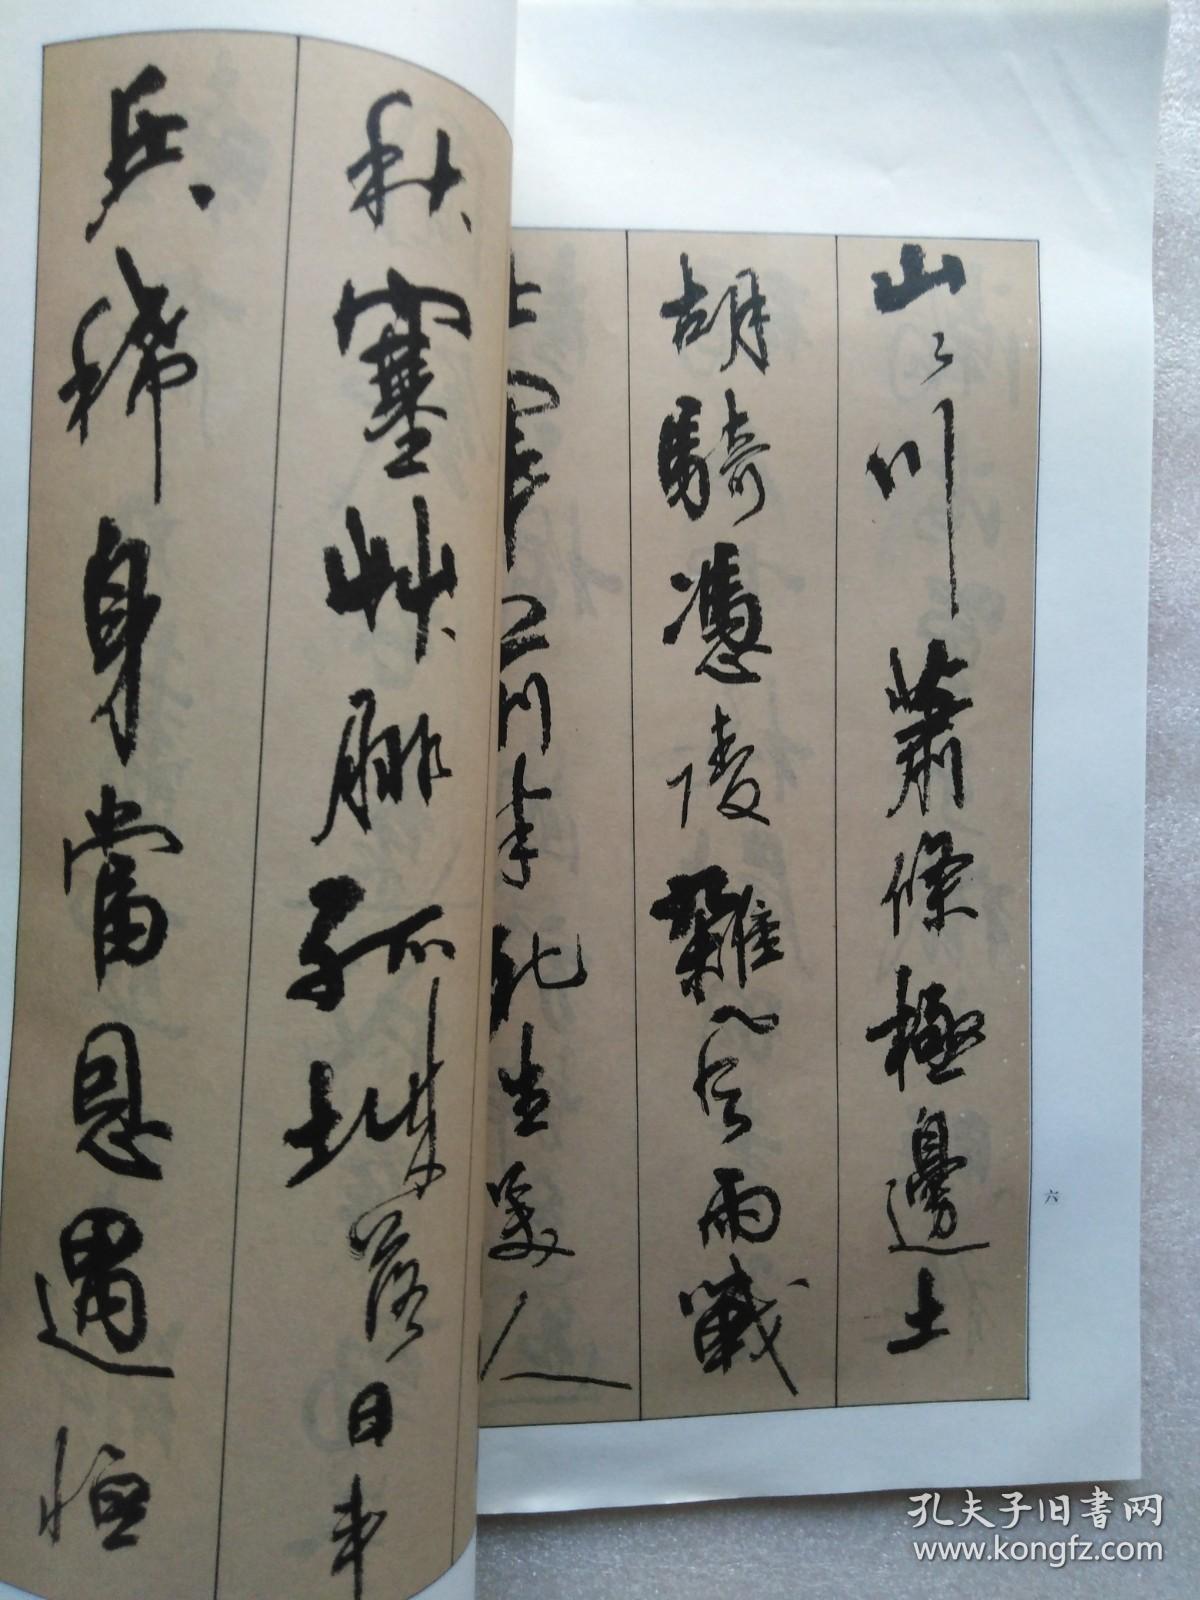 山〻川蕭條極邊土
胡騎憑陵雜風雨戰
士軍前半死生美人
秋塞艸腓孤城落日斗
兵稀身當恩遇恒
六
孔夫子旧书网
www.kongfz.com